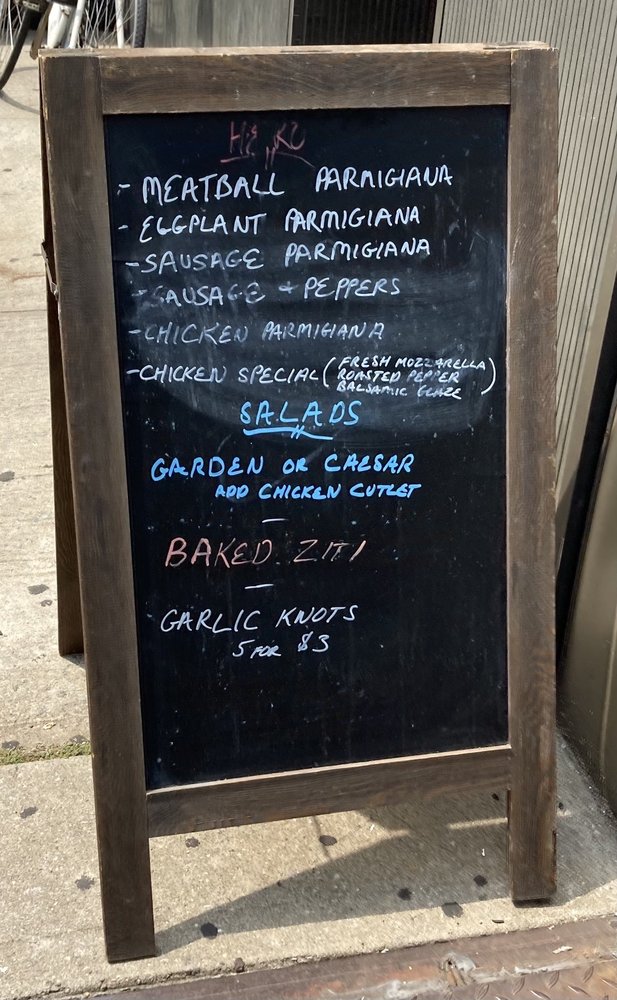 - MEATBALL PARMIGIANA
- EGGPLANT PARMIGIANA
- SAUSAGE PARMIGIANA
- SAUSAGE + PEPPERS
- CHICKEN PARMIGIANA
- CHICKEN SPECIAL (FRESH MOZZARELLA
ROASTED PEPPER
BALSAMIC GLAZE)
SALADS
GARDEN OR CAESAR
ADD CHICKEN CUTLET
—
BAKED ZITI
—
GARLIC KNOTS
5 FOR $3